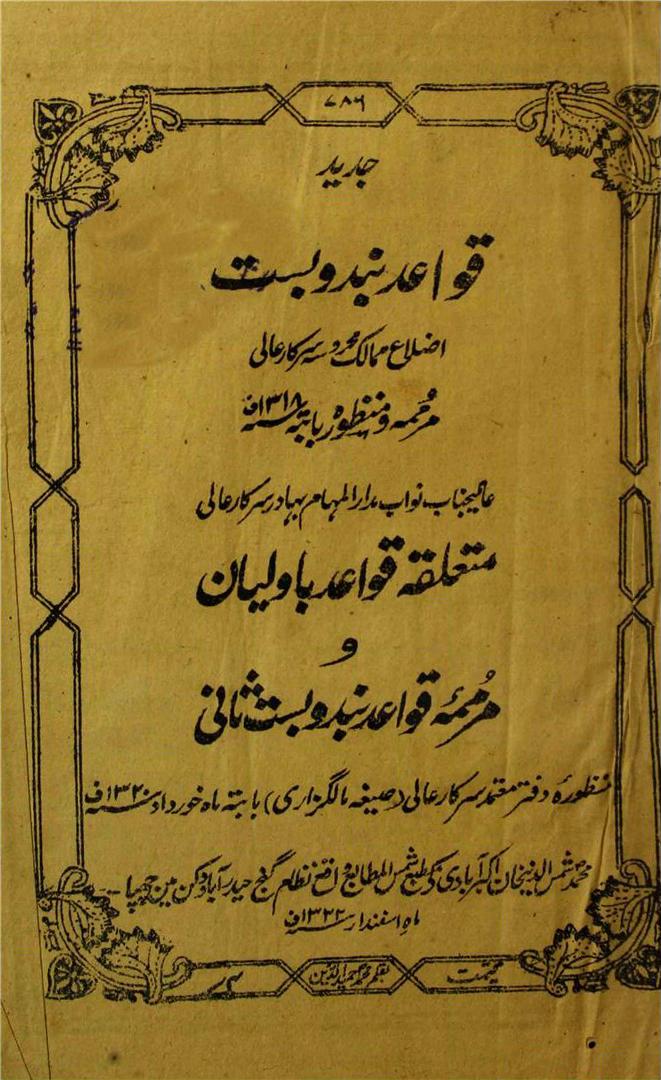 ۷۸۶
جدید
قواعد بندوبست
اضلاع ممالک محروسہ سرکار عالی
مرممہ و منظورہ بابتہ سنہ ۱۳۱۸ف
عالیجناب نواب مدار المہام بہادر سرکار عالی
متعلقہ قواعد باولیان
و
مرممۂ قواعد بندوبست ثانی
منظورۂ دفتر معتمد سرکار عالی (صیغہ مالگزاری) بابتہ ماہ خورداد سنہ ۱۳۲۰ف
محمد شمس الدینخان اکبرآبادی کی مطبع شمس المطابع واقع نظام گنج حیدرآباد دکن مین چھپا
ماہ اسفندار سنہ ۱۳۲۲ف
قیمت بقلم محمد حمید الدین